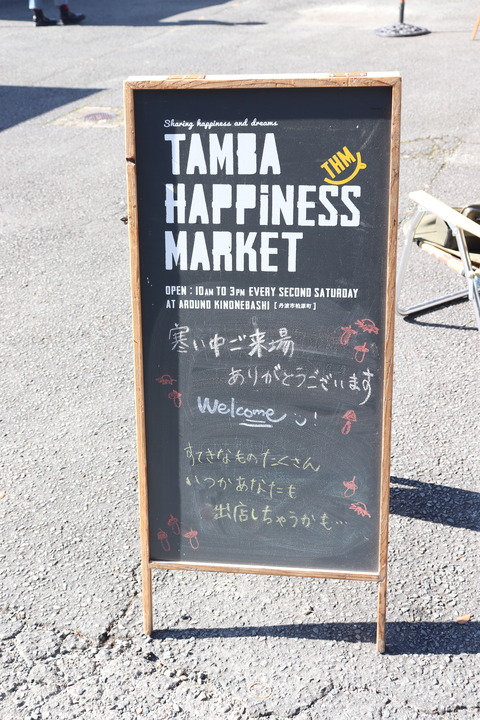 Sharing happiness and dreams
TAMBA
THM
HAPPiNESS
MARKET
OPEN : 10AM TO 3PM EVERY SECOND SATURDAY
AT AROUND KINONEBASHI [丹波市柏原町]
寒い中ご来場
ありがとうございます
Welcome !
すてきなものたくさん
いつかあなたも
出店しちゃうかも…